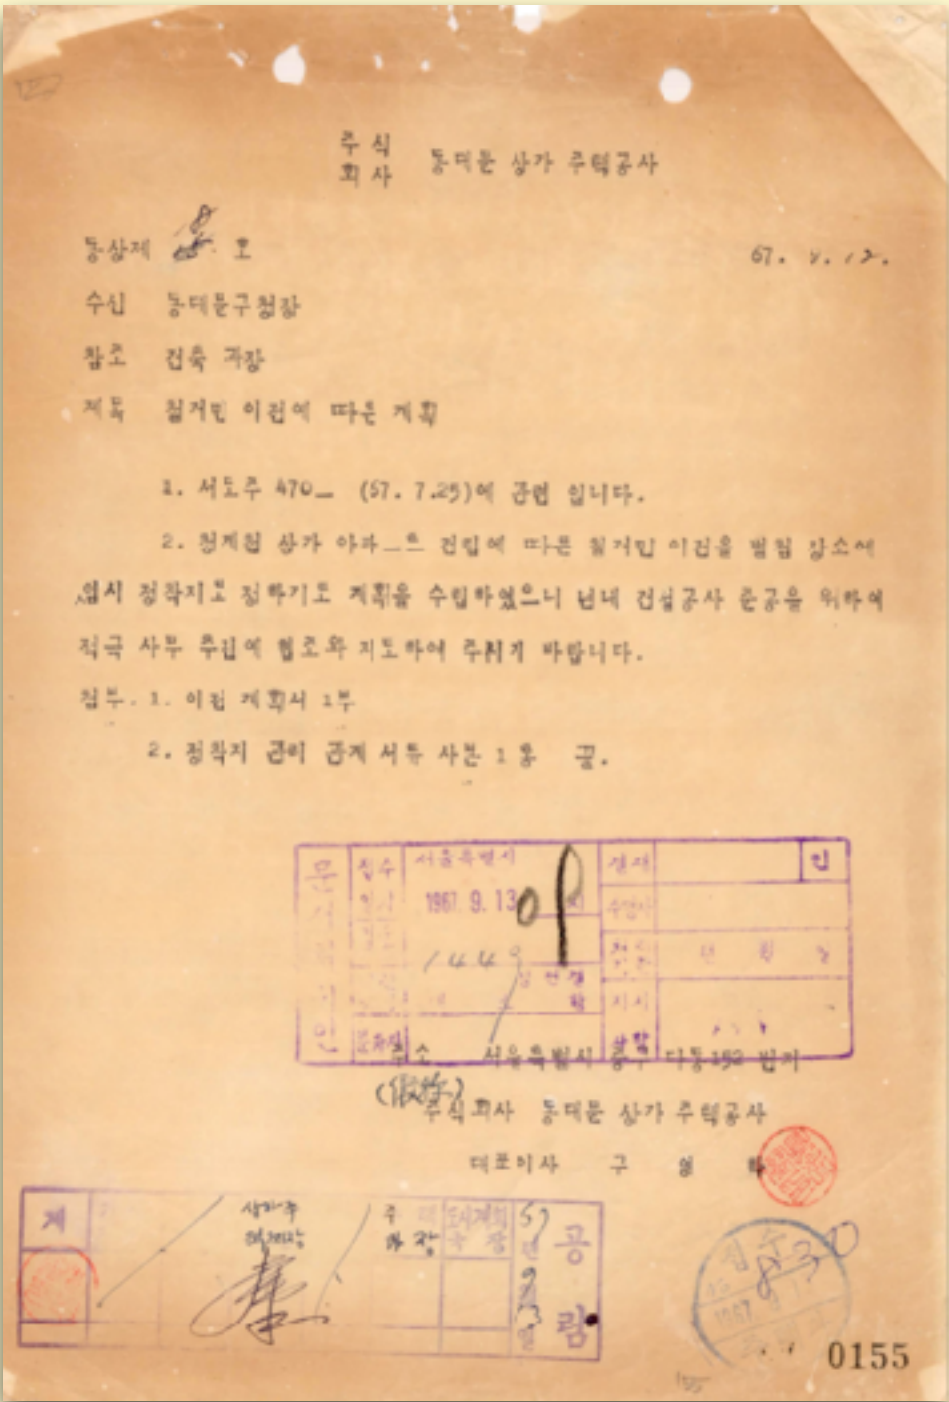 주식
회사 동대문 상가 주택공사
동상제 호 67. 9. 12.
수신 동대문구청장
참조 건축 과장
제목 철거민 이전에 따른 계획
1. 서도주 470— (67. 7.25)에 관련 입니다.
2. 청계천 상가 아파—트 건립에 따른 철거민 이전을 별첨 장소에
임시 정착지로 정하기로 계획을 수립하였으니 년내 건설공사 준공을 위하여
적극 사무 추진에 협조와 지도하여 주시기 바랍니다.
첨부. 1. 이전 계획서 1부
2. 정착지 관리 관계 서류 사본 1통 끝.
접수 서울특별시 결재 인
1967. 9. 13
1449
년 월 일
지시
주소 서울특별시 중구 다동152 번지
주식회사 동대문 상가 주택공사
대표이사 구
계 주택 도시계획 67 공
과장 국장 년
9
월
13 람
일
접수
1967
0155